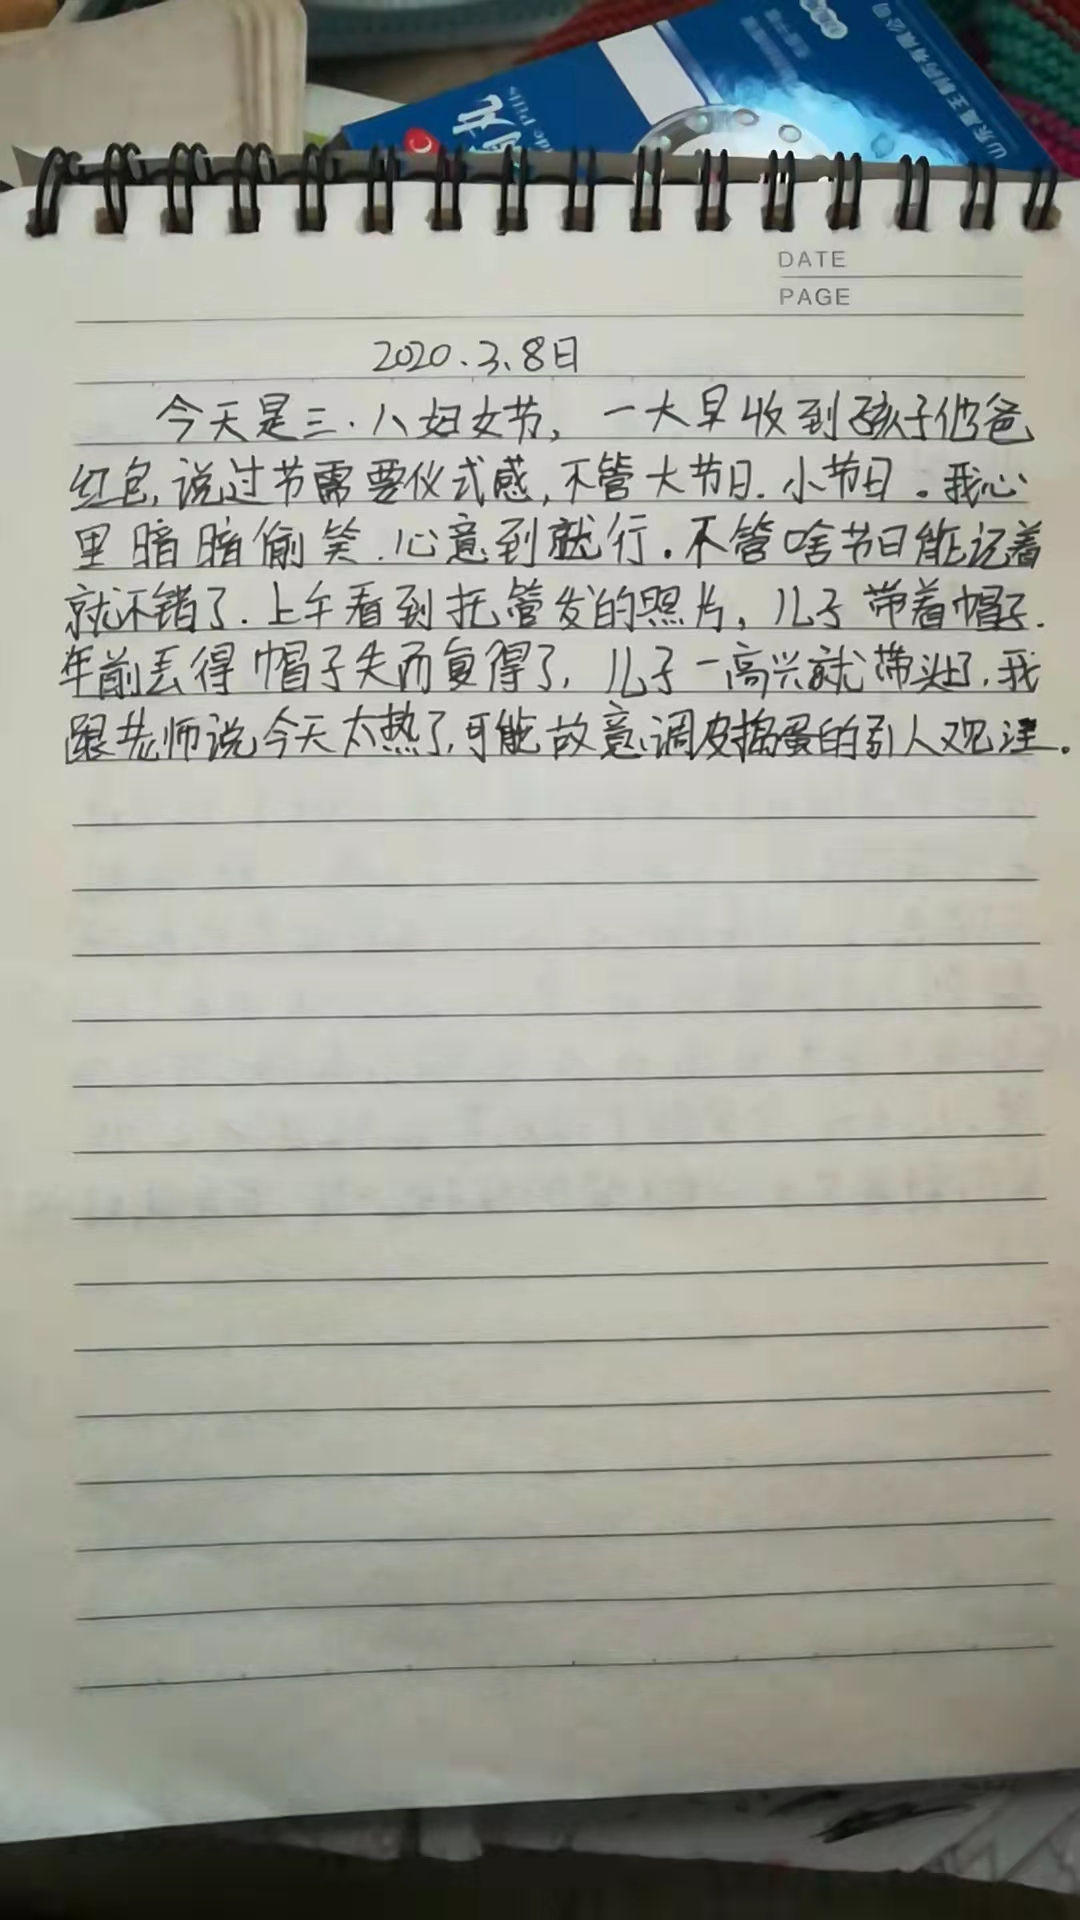 山东孔圣制药有限公司
DATE
PAGE
2020.3.8日
今天是三.八妇女节，一大早收到孩子他爸
红包,说过节需要仪式感,不管大节日.小节日。我心
里暗暗偷笑.心意到就行.不管啥节日能记着
就不错了.上午看到托管发的照片,儿子带着帽子.
年前丢得帽子失而复得了,儿子一高兴就带头了.我
跟老师说今天太热了,可能故意调皮捣蛋的引人观注.